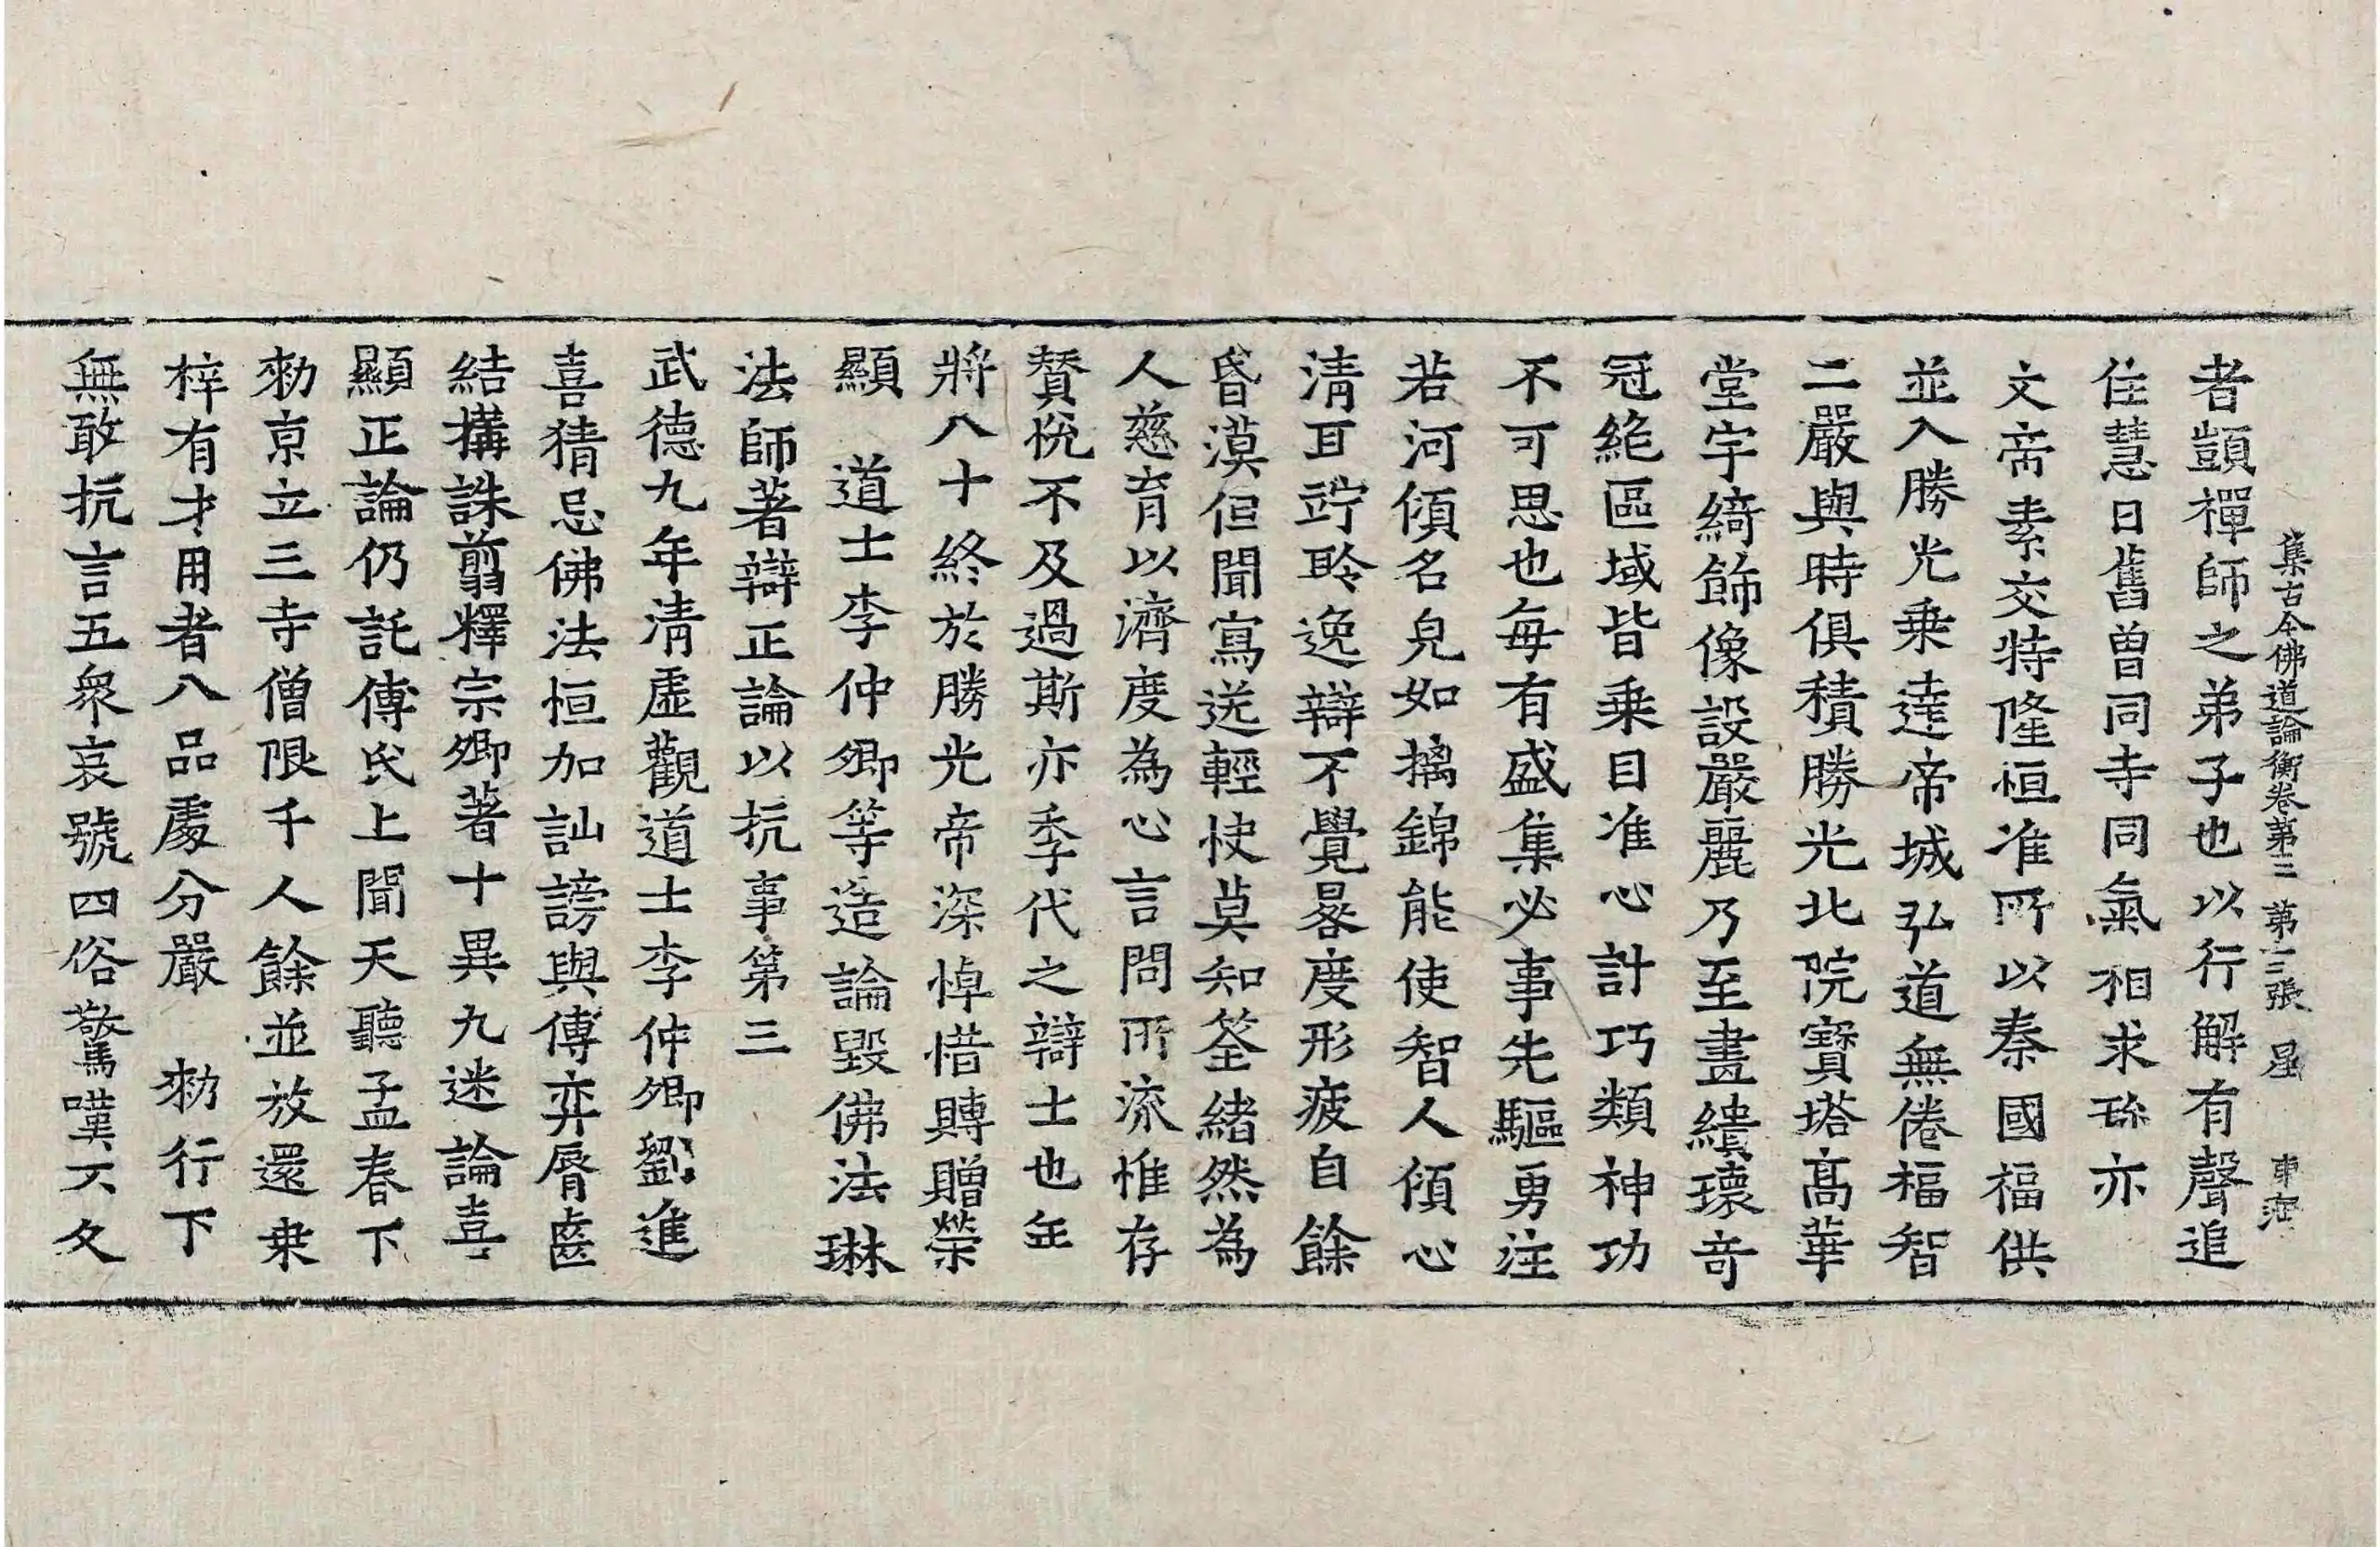 集古今佛道論衡卷第三 第十三張 星
者顗禪師之弟子也以行解有聲追
住慧日舊曽同寺同氣相求珎亦
文帝素交特隆恒准所以秦國福供
並入勝光乗達帝城弘道無倦福智
二嚴與時俱積勝光北院寶塔髙華
堂宇綺飾像設嚴麗乃至畫繢瓌竒
冠絶區域皆乗目准心計巧類神功
不可思也每有盛集必事先驅勇注
若河傾名皃如摛錦能使智人傾心
清耳竚聆逸辯不覺晷度形疲自餘
昏漠但聞寫送輕快莫知筌緒然為
人慈育以濟度為心言問所流惟存
賛悅不及過斯亦季代之辯士也年
將八十終於勝光帝深悼惜賻贈榮
顯 道士李仲卿等造論毀佛法琳
法師著辯正論以抗事第三
武德九年清虛觀道士李仲卿劉進
喜猜忌佛法恒加訕謗與傅弈脣齒
結搆誅翦釋宗卿著十異九迷論喜
顯正論仍託傅氏上聞天聽孟春下
勑京立三寺僧限千人餘並放還桒
梓有才用者八品處分嚴 勑行下
無敢抗言五衆哀號四俗驚嘆不久